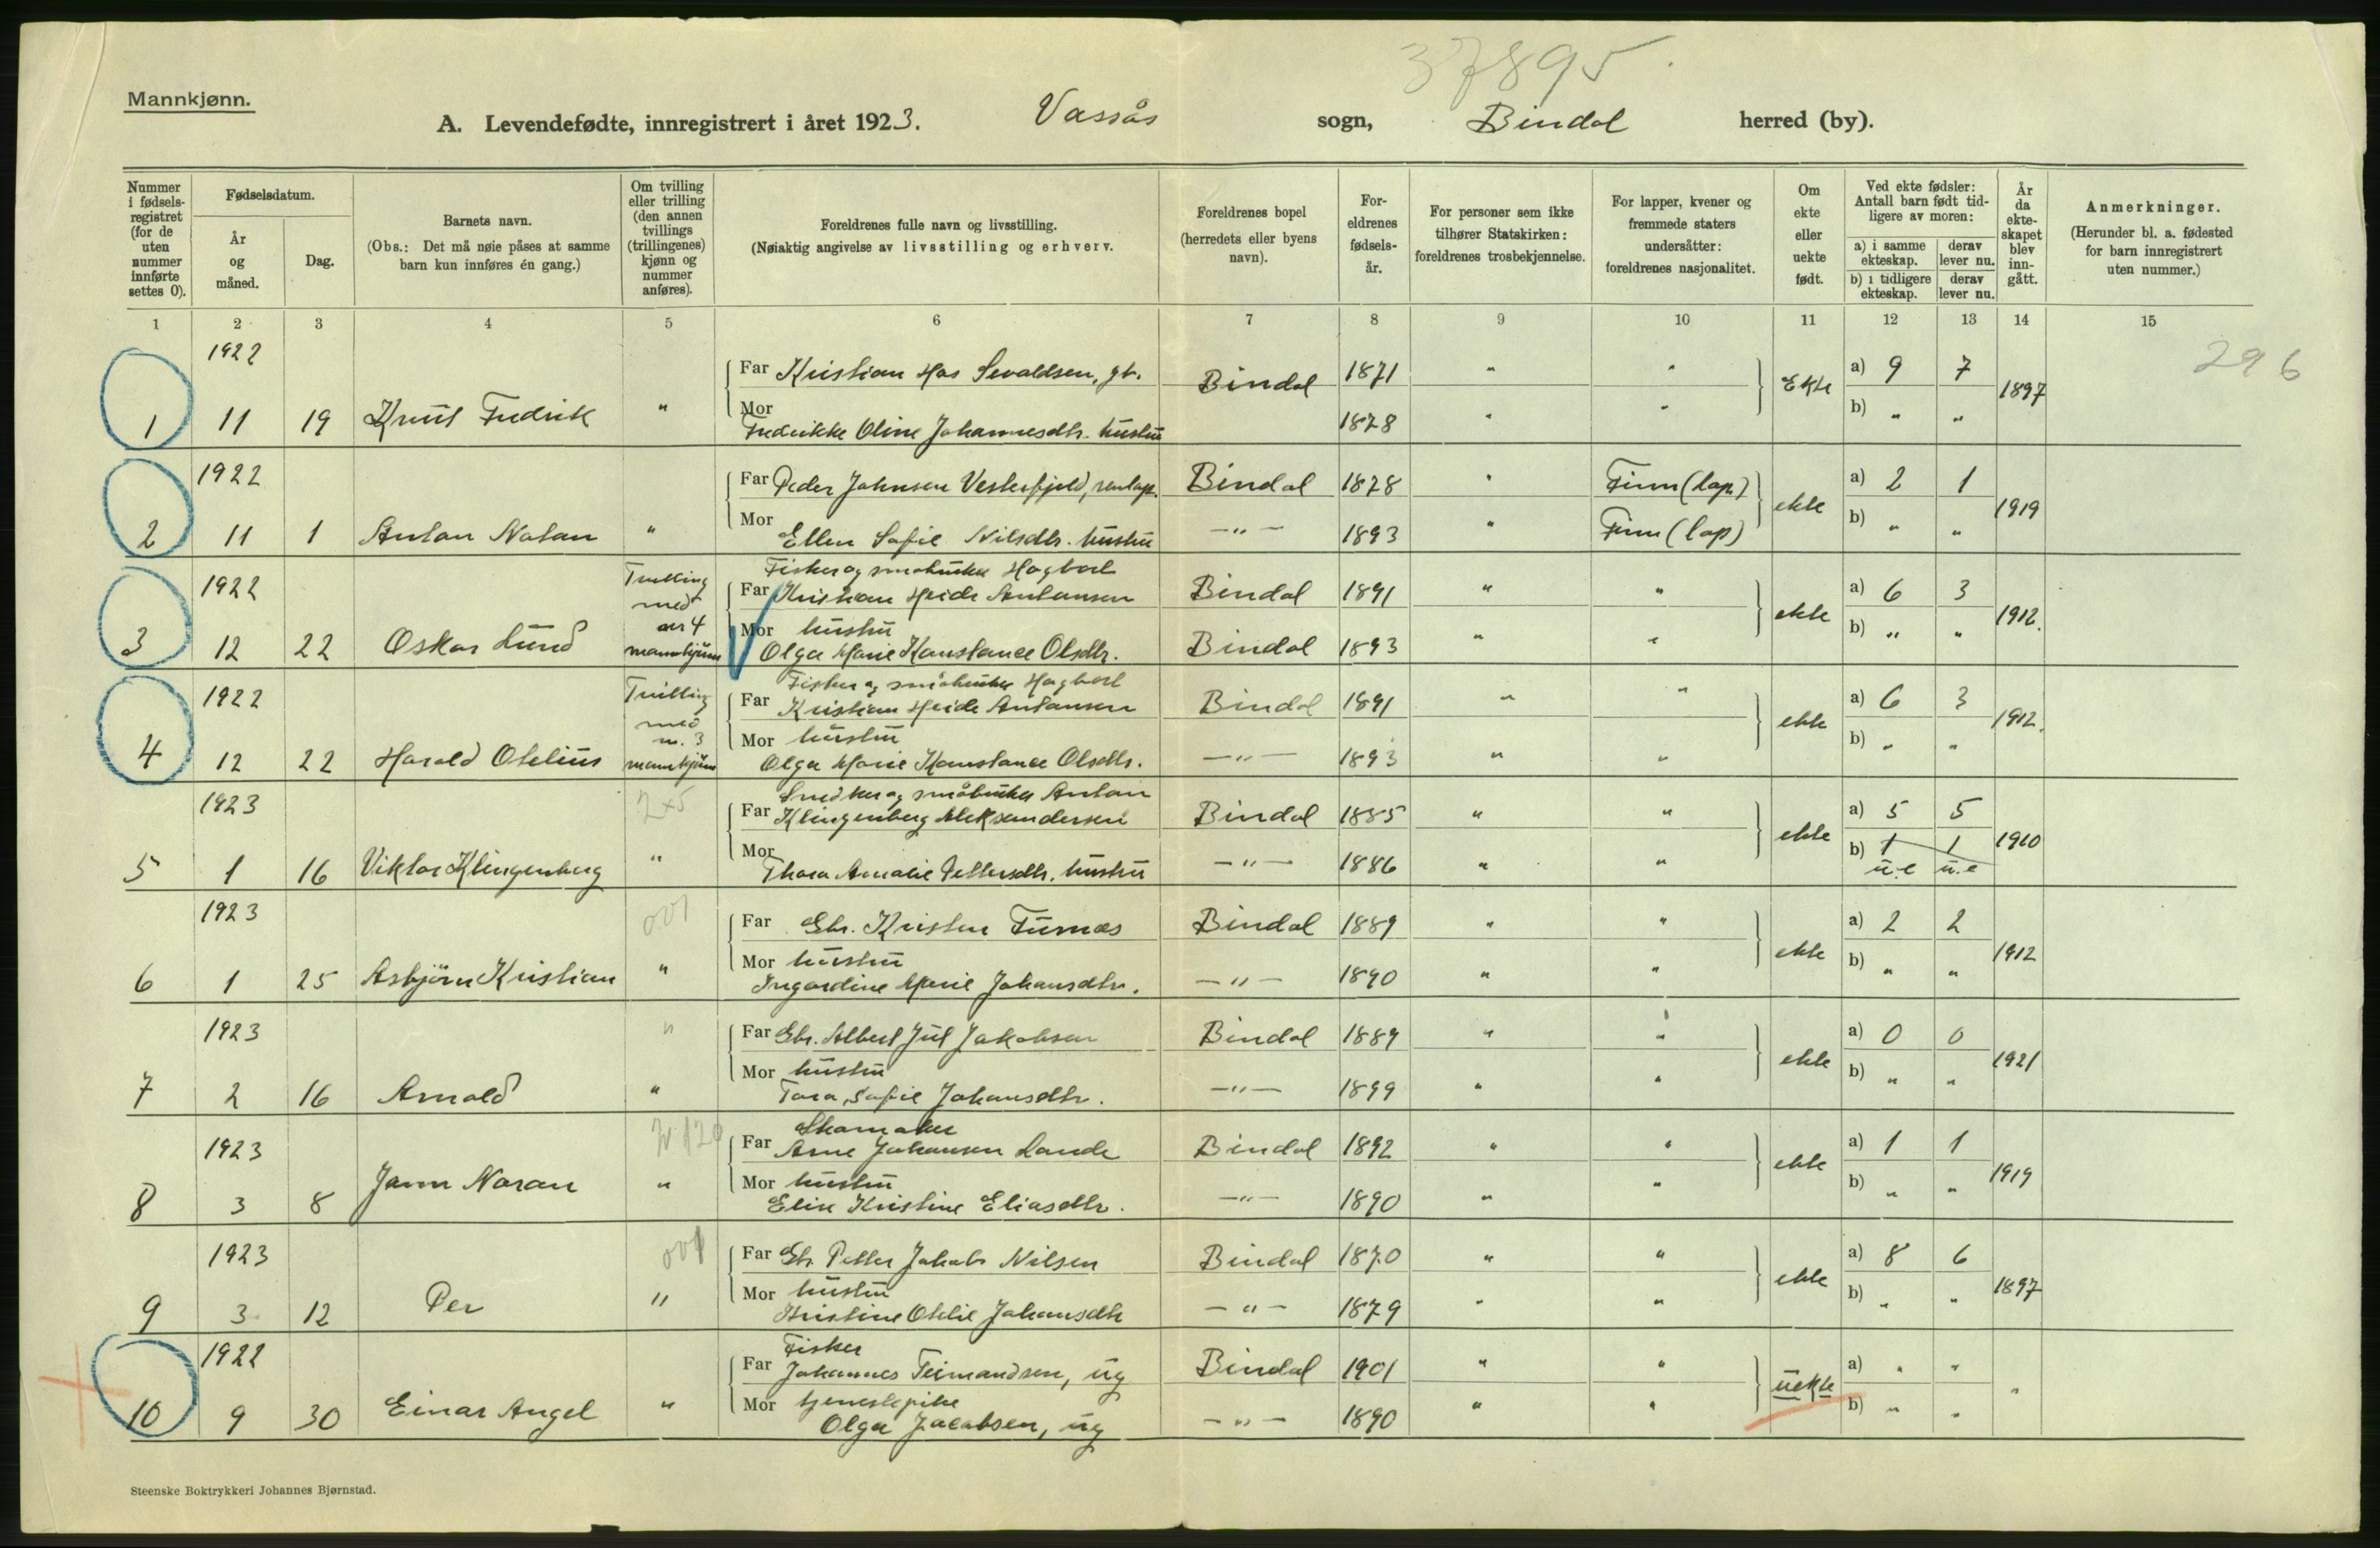 37895.
Mannkjønn.
A. Levendefødte, innregistrert i året 1923. Vassås sogn, Bindal herred (by).
Nummer i fødsels-registret (for de uten nummer innførte settes 0).
Fødselsdatum.
År og måned.
Dag.
Barnets navn.
(Obs.: Det må nøie påses at samme barn kun innføres én gang.)
Om tvilling eller trilling (den annen tvillings (trillingenes) kjønn og nummer anføres).
Foreldrenes fulle navn og livsstilling.
(Nøiaktig angivelse av livsstilling og erhverv.
Foreldrenes bopel (herredets eller byens navn).
For-eldrenes fødsels-år.
For personer som ikke tilhører Statskirken: foreldrenes trosbekjennelse.
For lapper, kvener og fremmede staters undersåtter: foreldrenes nasjonalitet.
Om ekte eller uekte født.
Ved ekte fødsler: Antall barn født tid-ligere av moren:
a) i samme ekteskap. derav lever nu.
b) i tidligere ekteskap. derav lever nu.
År da ekte-skapet blev inn-gått.
Anmerkninger.
(Herunder bl. a. fødested for barn innregistrert uten nummer.)
1 2 3 4 5 6 7 8 9 10 11 12 13 14 15
296
1922
Far Kristian Has Sevaldsen, gb. Bindal 1871 " " Ekte a) 9 7 1897
1 11 19 Knut Fredrik "
Mor Fredrikke Oline Johannesdtr. hustru 1878 " " b) " "
1922
Far Peder Johnsen Vesterfjeld, renlap. Bindal 1878 " Finn (lap) ekte a) 2 1 1919
2 11 1 Anton Natan "
Mor Ellen Sofie Nilsdtr. hustru —"— 1893 " Finn (lap) b) " "
1922 Tvilling med nr 4 mannkjønn
Fisker og småbruker Hagbart
Far Kristian Heide Antonsen Bindal 1891 " " ekte a) 6 3 1912.
3 12 22 Oskar Lund
Mor hustru
Olga Marie Konstance Olsdtr. Bindal 1893 " " b) " "
1922 Tvilling med nr. 3 mannkjønn
Fisker og småbruker Hagbart
Far Kristian Heide Antonsen Bindal 1891 " " ekte a) 6 3 1912.
4 12 22 Harald Otelius
Mor hustru
Olga Marie Konstance Olsdtr. —"— 1893 " " b) " "
1923 2x5
Snedker og småbruker Anton
Far Klingenberg Aleksandersen Bindal 1885 " " ekte a) 5 5 1910
5 1 16 Viktor Klingenberg "
Mor Thora Amalie Pettersdtr. hustru —"— 1886 " " b) 1 1
u.e u.e
1923 001
Far Gbr. Kristen Furnes Bindal 1889 " " ekte a) 2 2 1912
6 1 25 Asbjörn Kristian "
Mor hustru
Ingardine Marie Johansdtr. —"— 1890 " " b) " "
1923 "
Far Gbr. Albert Jul Jakobsen Bindal 1889 " " ekte a) 0 0 1921
7 2 16 Arnold "
Mor hustru
Tora Sofie Johansdtr. —"— 1899 " " b) " "
1923
Skomaker
Far Arne Johansen Lande Bindal 1892 " " ekte a) 1 1 1919
8 3 8 Jann Noran "
Mor hustru
Elise Kristine Eliasdtr. —"— 1890 " " b) " "
1923 001
Far Gbr Petter Jakob Nilsen Bindal 1870 " " ekte a) 8 6 1897
9 3 12 Per "
Mor hustru
Kristine Otelie Johansdtr —"— 1879 " " b) " "
1922
Fisker
Far Johannes Teimandsen, ug Bindal 1901 " " uekte a) " " "
10 9 30 Einar Angel "
Mor tjenestepike
Olga Jacobsen, ug —"— 1890 " " b) " "
Steenske Boktrykkeri Johannes Bjørnstad.